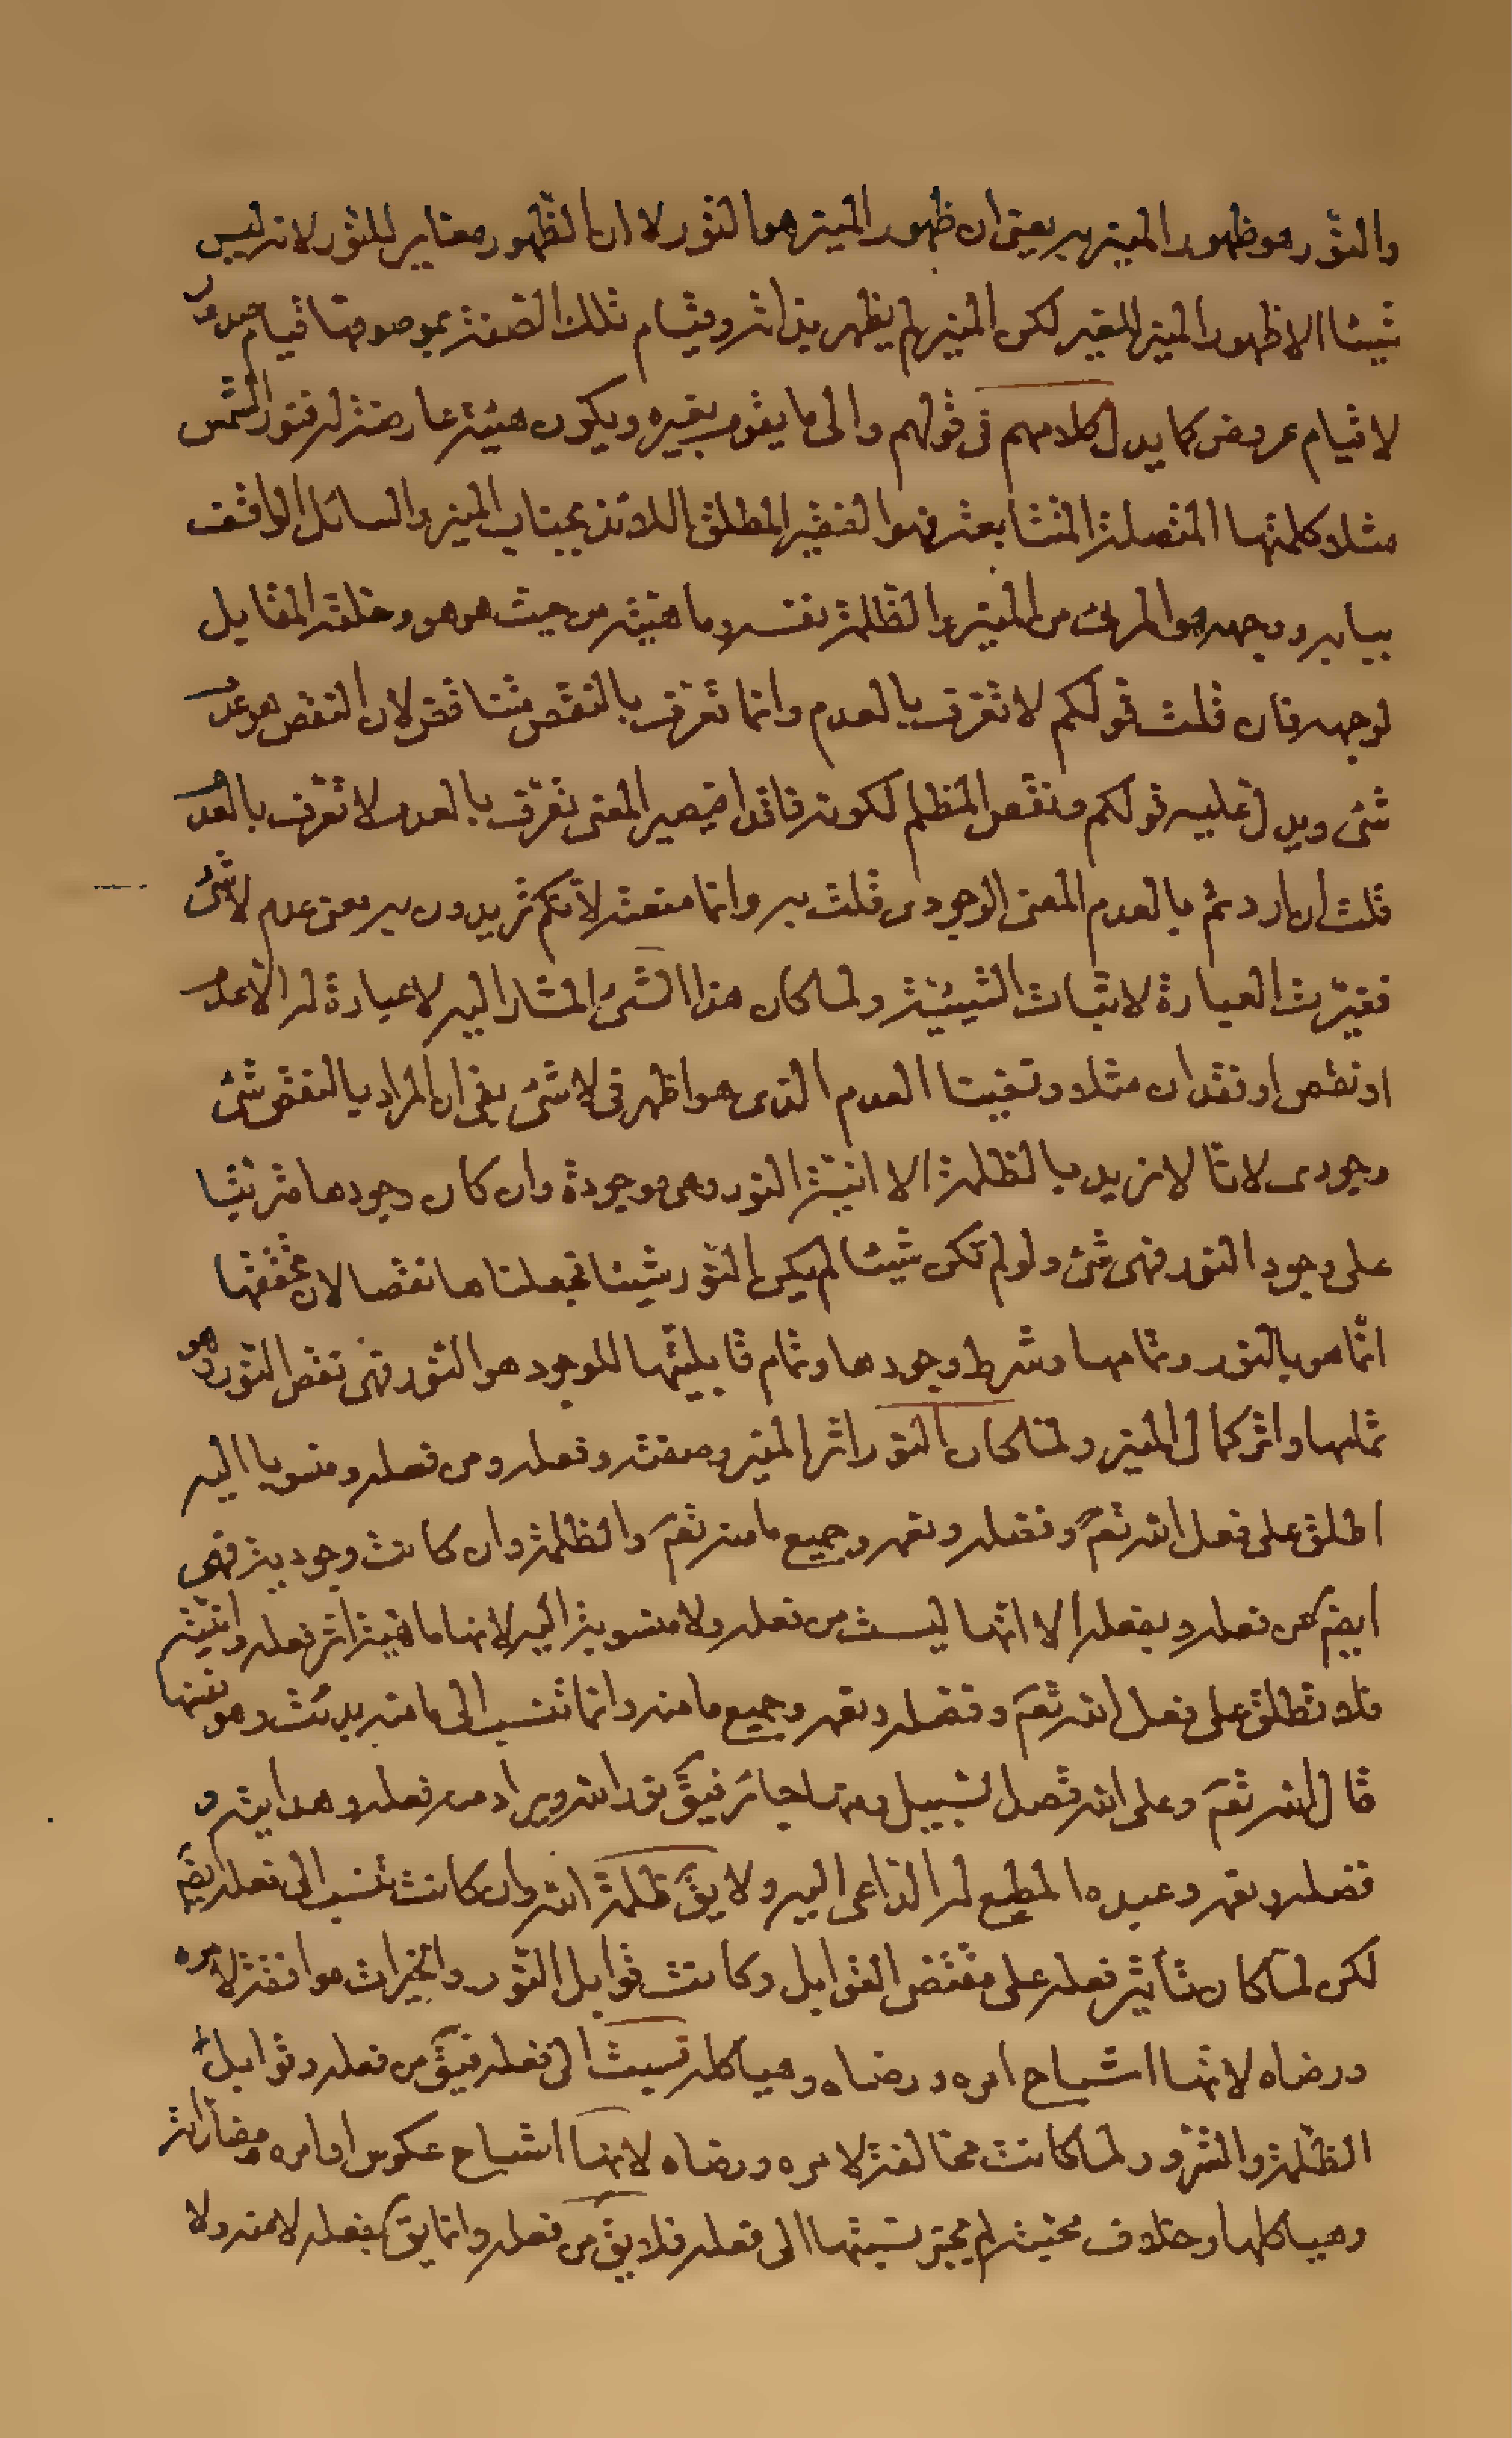 والنور هو ظهور المنير به بمعنى ان ظهور المنير هو النور لا ان الظهور مغاير للنور لانه ليس
شيئا الا ظهور المنير للغير لكن المنير لم يظهر بذاته وقيام تلك الصفة بموصوفها قيام صدور
لا قيام عروض كما يدل كلامهم فى قولهم والى ما يقوم بغيره ويكون هيئة عارضة له فنور الشمس
مثلا كلمتها المتصلة المتشابعة فهو الفقير المطلق اللائذ بجناب المنير والسائل الواقف
ببابه ووجهه هو المرئى من المنير والظلمة نفسه وماهيته من حيث هو هو وخلفه المقابل
لوجهه فان قلت قولكم لا تعرف بالعدم وانما تعرف بالنقص متناقض لان النقص هو عدم
شئ ويدل عليه قولكم ونقص المظلم لكونه فاقدا فيصير المعنى تعرف بالعدم لا تعرف بالعدم
قلت ان اردتم بالعدم المعنى الوجودى قلت به وانما منعته لانكم تريدون به معنى عدم لا شئ
فغيرت العبارة لاثبات الشيئية ولما كان هذا الشئ المشار اليه لا عبارة له الا عدم
او نقص او فقدان مثلا ونفينا العدم الذى هو اظهر فى لا شئ بقى ان المراد بالنقص شئ
وجودى لانا لا نريد بالظلمة الا انية النور وهى موجودة وان كان وجودها مترتبا
على وجود النور فهى شئ ولو لم تكن شيئا لم يكن النور شيئا فجعلناها نقصا لان تحققها
انما هو بالنور وتمامها وشرط وجودها وتمام قابليتها للوجود هو النور فهى نقص النور وهو
تمامها واثر كمال المنير ولما كان النور اثر المنير وصفته وفعله ومن فعله ومنسوبا اليه
اطلق على فعل الله تعم وفضله ونعمه وجميع ما منه تعم والظلمة وان كانت وجودية فهى
ايضم عن فعله وبفعله الا انها ليست من فعله ولا منسوبة اليه لانها ماهية اثر فعله وانيته
فلا تطلق على فعل الله تعم وفضله ونعمه وجميع ما منه وانما تنسب الى ما منه بدئت وهو نفسها
قال الله تعم وعلى الله قصد السبيل ومنها جائر فيق نور الله ويراد منه فعله وهدايته و
فضله ونعمه وعبده المطيع له الداعى اليه ولا يق ظلمة الله وان كانت تنسب الى فعله ايضم
لكن لما كان تأثير فعله على مقتضى القوابل وكانت قوابل النور والخيرات موافقة لامره
ورضاه لانها اشباح امره ورضاه وهياكله نسبت الى فعله فيق من فعله وقوابل
الظلمة والشرور لما كانت مخالفة لامره ورضاه لانها اشباح عكوس اوامره ومضاداته
وهياكلها وخلاف محبته لم يجز نسبتها الى فعله فلا يق من فعله وانما يق بفعله لا منه ولا